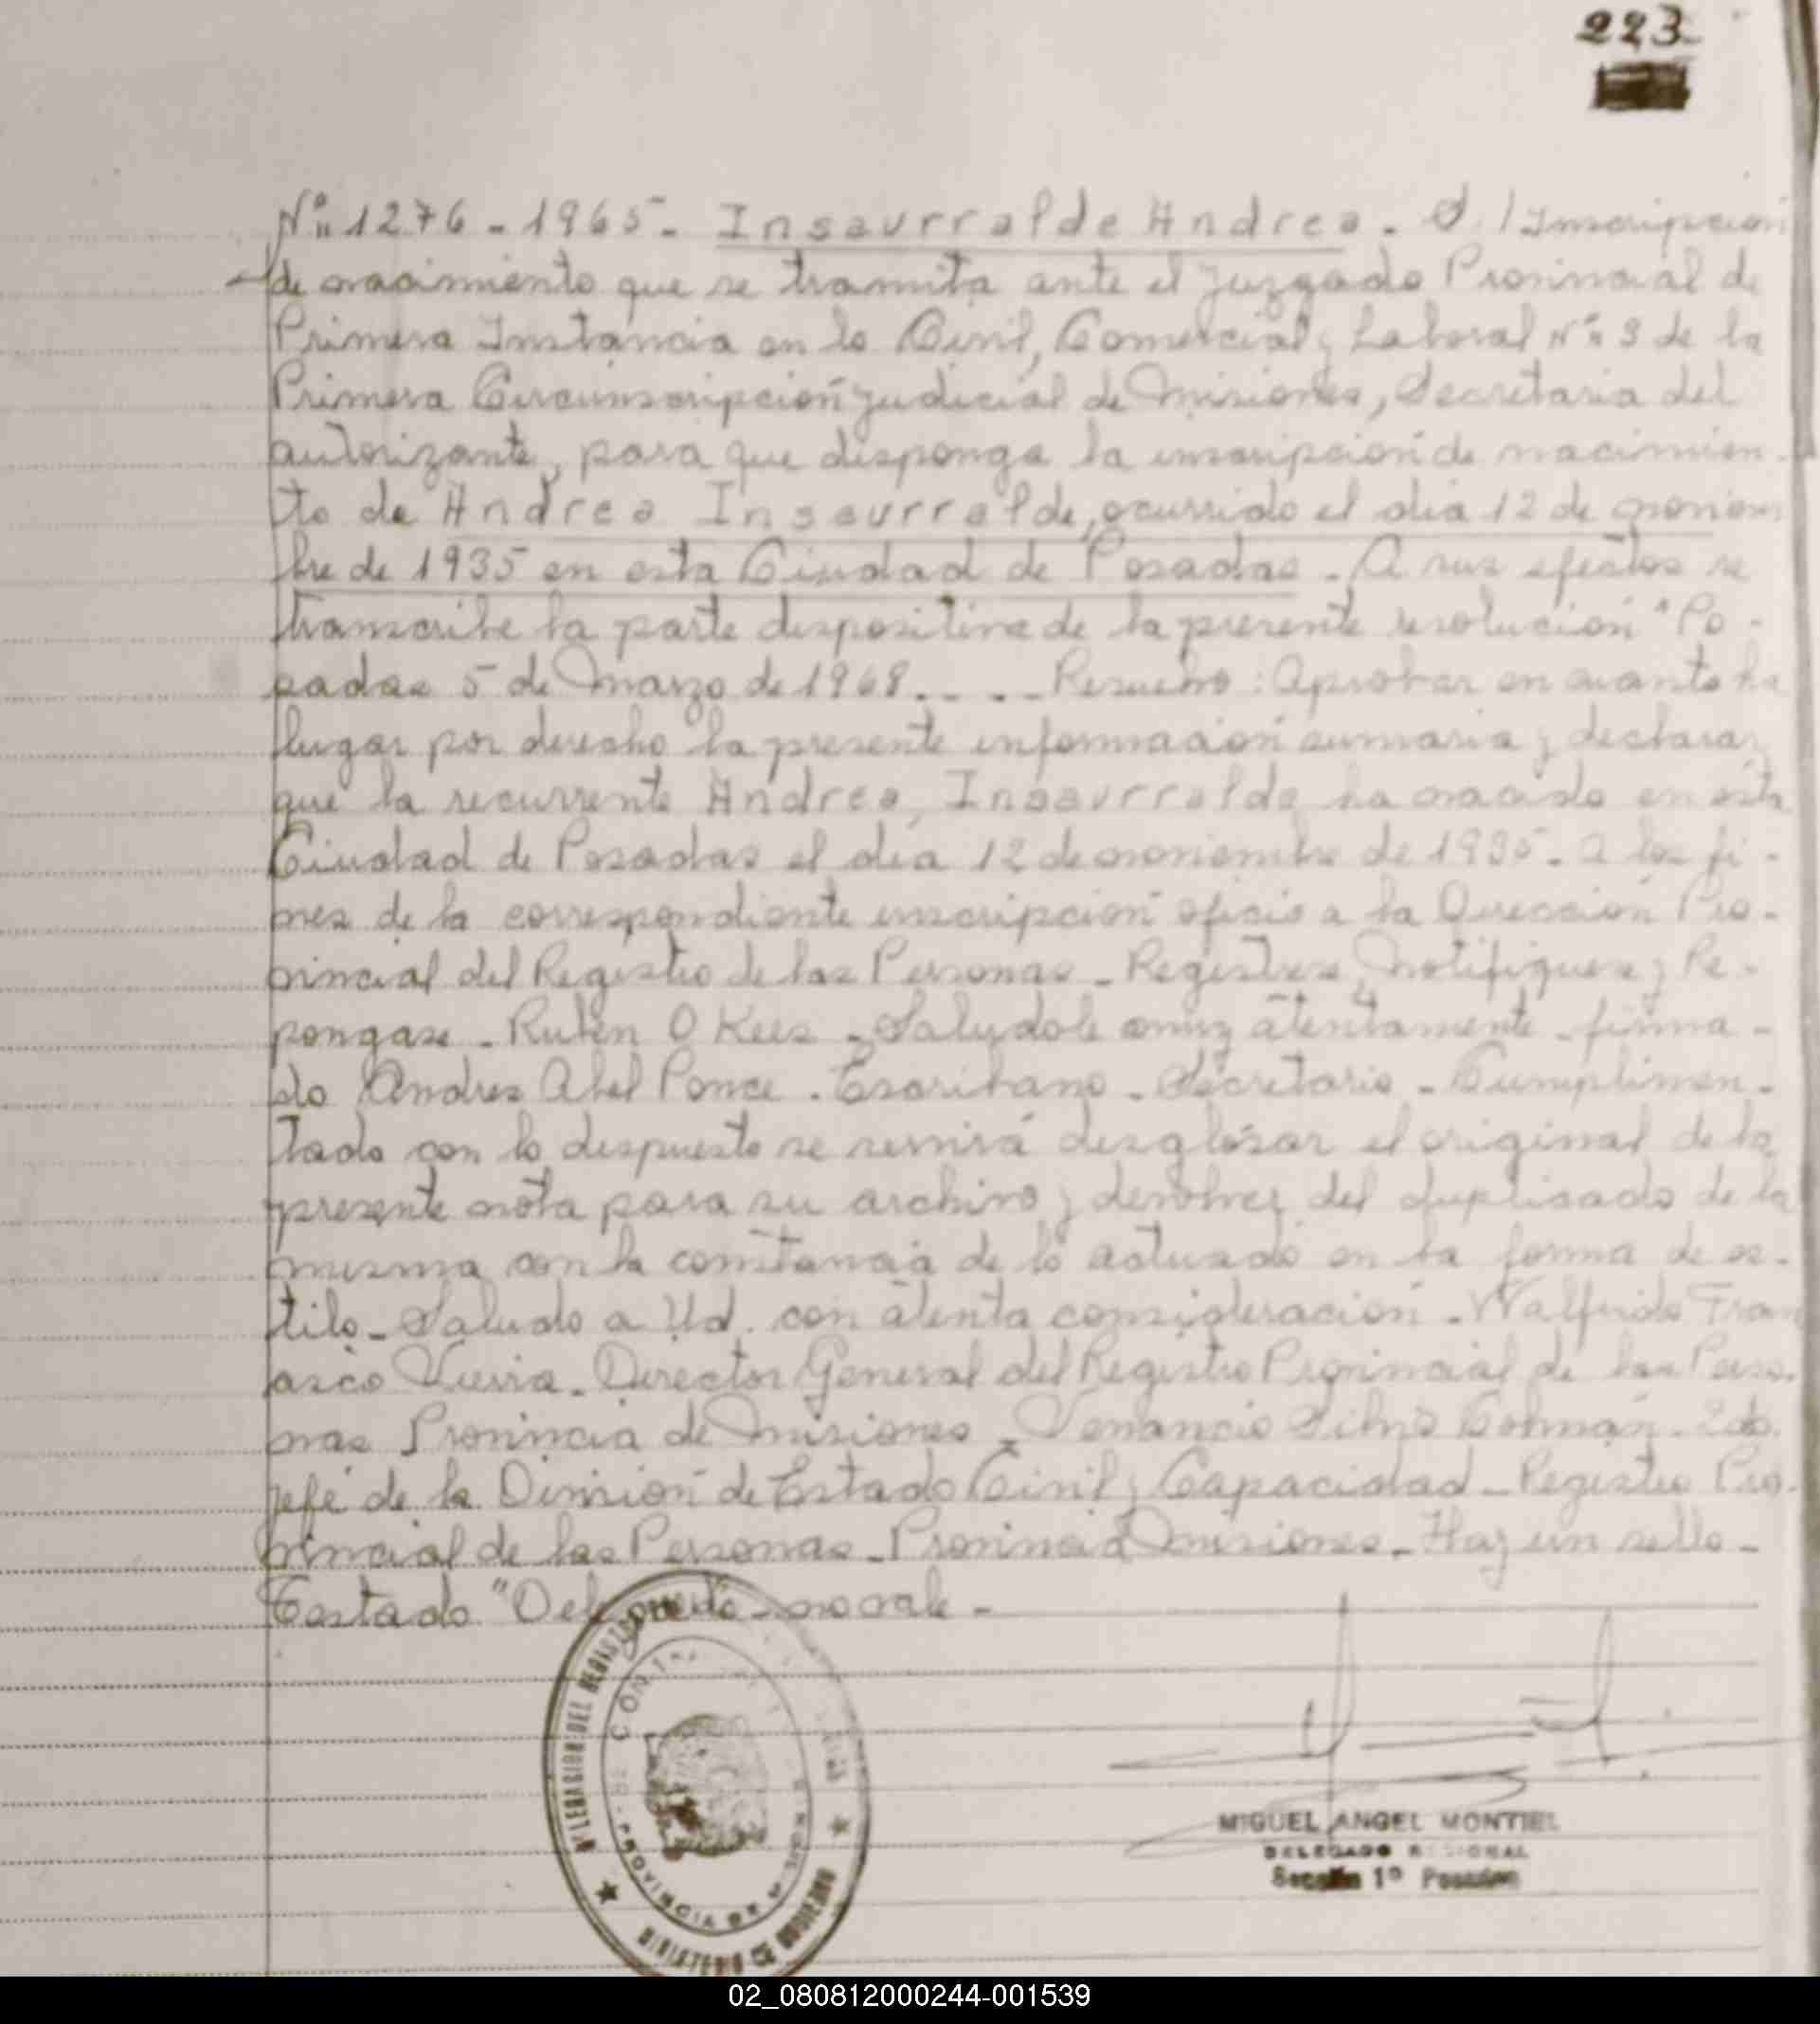 223
Nº 1276-1965- Insaurralde Andrea. S/ Inscripcion
de nacimiento que se tramita ante el Juzgado Provincial de
Primera Instancia en lo Civil, Comercial y Laboral Nº 3 de la
Primera Circunscripción Judicial de Misiones, Secretaria del
autorizante, para que disponga la inscripción de nacimien-
to de Andrea Insaurralde, ocurrido el dia 12 de noviem
bre de 1935 en esta Ciudad de Posadas. A sus efectos se
transcribe la parte dispositiva de la presente resolución "Po-
sadas 5 de Marzo de 1968. . . . Resuelvo: Aprobar en cuanto ha
lugar por derecho la presente información sumaria y declarar
que la recurrente Andrea, Insaurralde ha nacido en esta
Ciudad de Posadas el día 12 de noviembre de 1935. a los fi-
nes de la correspondiente inscripción oficio a la Dirección Pro-
vincial del Registro de las Personas - Registrese, Notifiquese y Re-
pongase - Ruben O Kees - Saludole muy atentamente - firma-
do Andres Abel Ponce. Escribano - Secretario - Cumplimen-
tado con lo dispuesto se servirá desglosar el original de la
presente nota para su archivo y devolver del duplicado de la
misma con la constancia de lo actuado en la forma de es-
tilo - Saludo a Ud. con atenta consideración - Walfrido Fran
cisco Vieira - Director General del Registro Provincial de las Perso-
nas Provincia de Misiones - Venancio Colmán. 2do.
jefe de la División de Estado Civil y Capacidad - Registro Pro-
vincial de las Personas - Provincia Misiones - Hay un sello -
Testado - no vale -
DELEGACION DEL REGISTRO
PROVINCIA DE MISIONES
MINISTERIO DE GOBIERNO
MIGUEL ANGEL MONTIEL
DELEGADO REGIONAL
Sección 1º Posadas
02_080812000244-001539